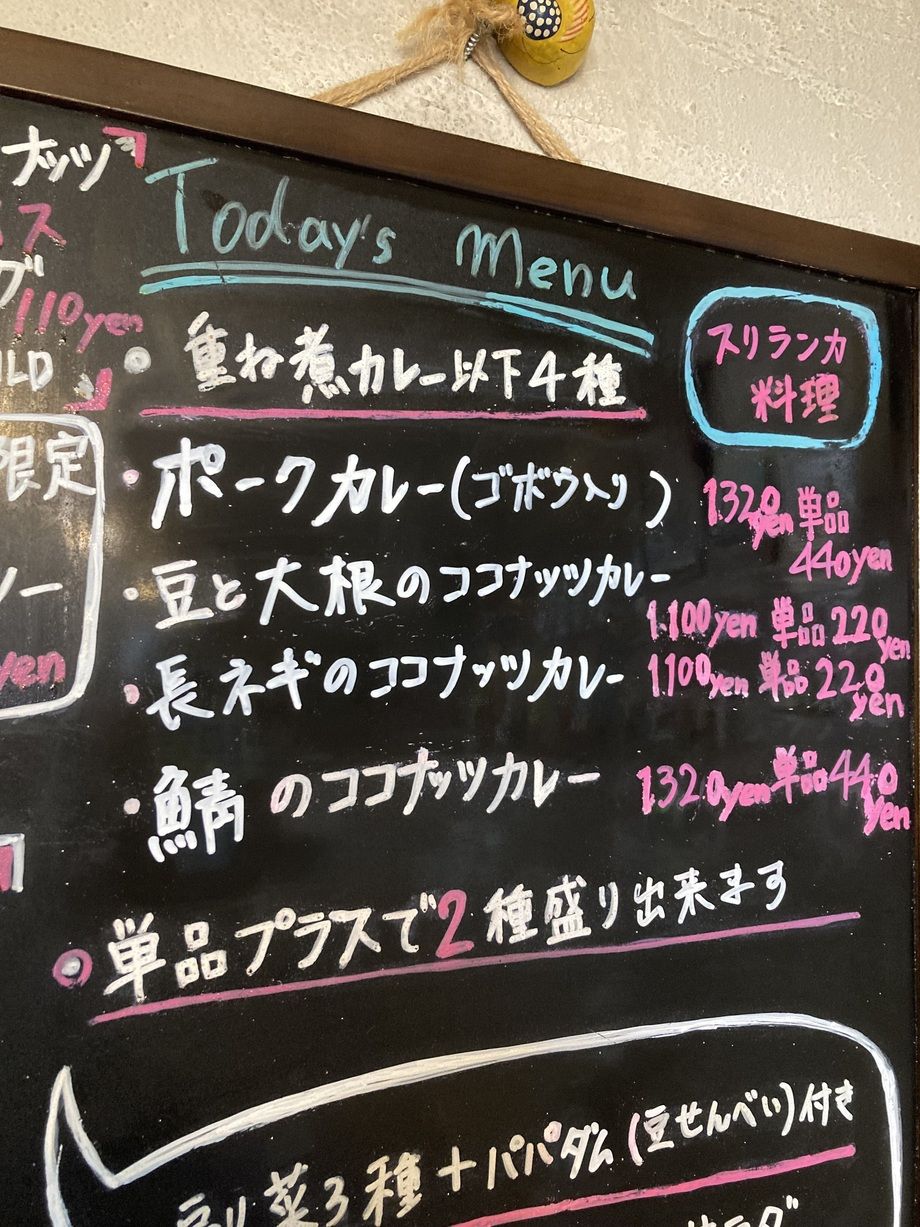 ナッツ
ス
グ
110yen
限定
yen
Today's Menu
重ね煮カレー以下4種
スリランカ
料理
・ポークカレー(ゴボウ入り)
1320yen 単品
440yen
・豆と大根のココナッツカレー
1.100yen 単品220yen
・長ネギのココナッツカレー
1100yen 単品220yen
・鯖のココナッツカレー
1320yen 単品440yen
単品プラスで2種盛り出来ます
副菜3種+パパダム(豆せんべい)付き